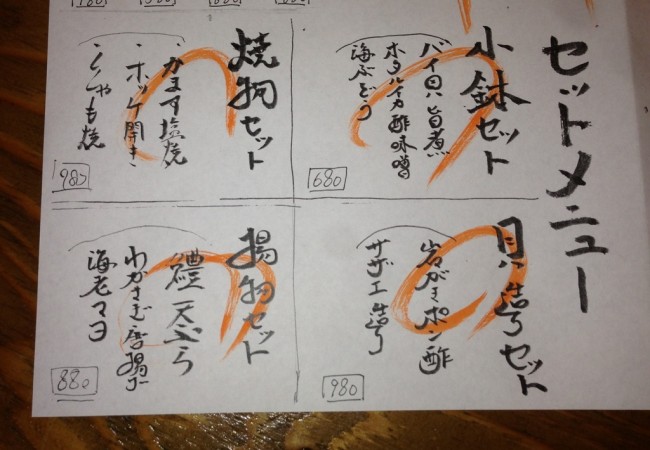 セットメニュー
小鉢セット
バイ貝旨煮
ホタルイカ酢味噌
海ぶどう
680
貝造りセット
岩がきポン酢
サザエ造り
980
焼物セット
・かます塩焼
・ホッケ開き
・ししゃも焼
980
揚物セット
鱧天ぷら
わかさぎ唐揚げ
海老マヨ
880